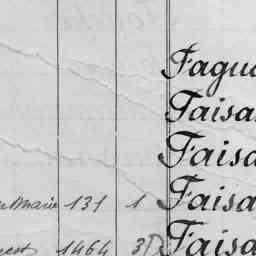 Fagu
Faisa
Faisa
Marie 131 1 Faisa
1464 3 Faisa